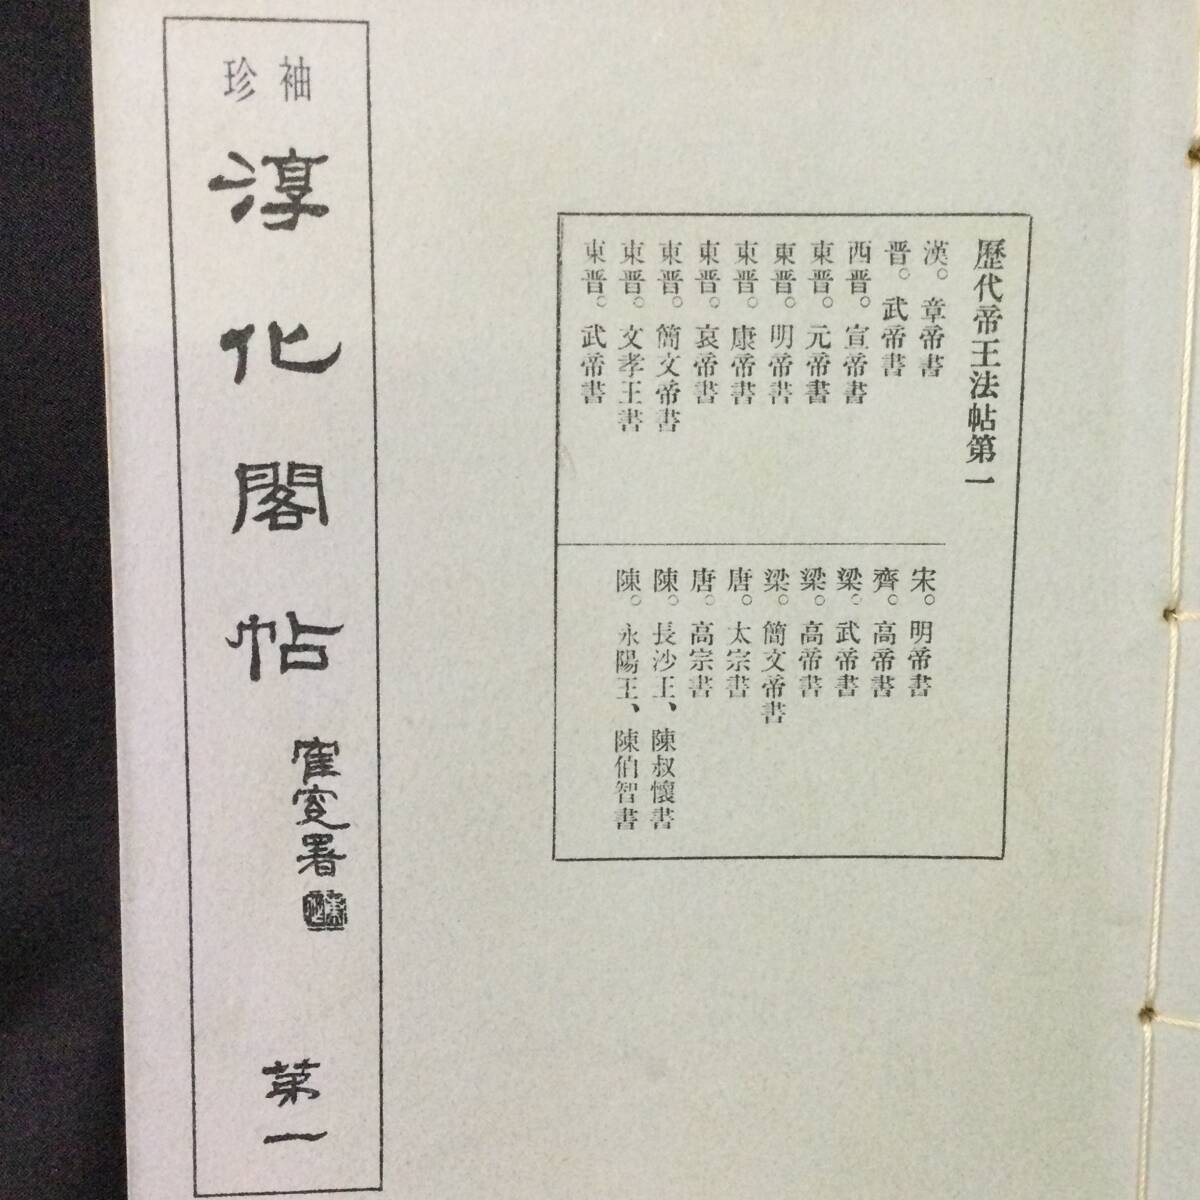 歷代帝王法帖第一
漢。章帝書
晋。武帝書
西晋。宣帝書
東晋。元帝書
東晋。明帝書
東晋。康帝書
東晋。哀帝書
東晋。簡文帝書
東晋。文孝王書
東晋。武帝書
宋。明帝書
齊。高帝書
梁。武帝書
梁。高帝書
梁。簡文帝書
唐。太宗書
唐。高宗書
陳。長沙王、陳叔懷書
陳。永陽王、陳伯智書
袖珍
淳化閣帖
署
第一